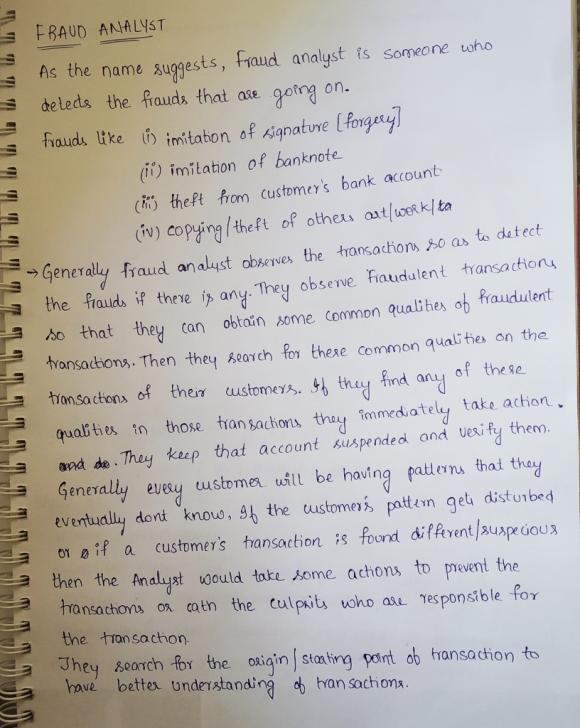 FRAUD ANALYST
As the name suggests, Fraud analyst is someone who
detects the frauds that are going on.
Frauds like (i) imitation of signature [forgery]
(ii) imitation of banknote
(iii) theft from customer's bank account
(iv) copying/theft of others art/work/ta
→ Generally fraud analyst observes the transactions so as to detect
the frauds if there is any. They observe fraudulent transactions
so that they can obtain some common qualities of fraudulent
transactions. Then they search for these common qualities on the
transactions of their customers. If they find any of these
qualities in those transactions they immediately take action.
and de. They keep that account suspended and verify them.
Generally every customer will be having patterns that they
eventually dont know, If the customer's pattern gets disturbed
or if a customer's transaction is found different/suspecious
then the Analyst would take some actions to prevent the
transactions or cath the culprits who are responsible for
the transaction.
They search for the origin/starting point of transaction to
have better understanding of transactions.